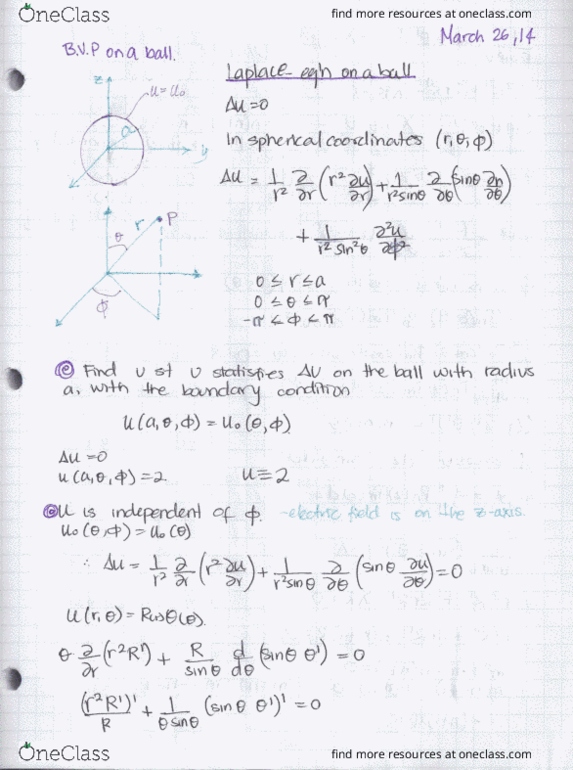 OneClass
find more resources at oneclass.com
March 26, 14
B.V.P on a ball.
Laplace eqn on a ball
z
u=u₀
a
y
Δu=0
In spherical coordinates (r,θ,φ)
Δu = 1/r² ∂/∂r (r² ∂u/∂r) + 1/(r² sinθ) ∂/∂θ (sinθ ∂u/∂θ)
+ 1/(r² sin²θ) ∂²u/∂φ²
r
P
θ
φ
0 ≤ r ≤ a
0 ≤ θ ≤ π
-π ≤ φ ≤ π
ⓔ Find u st u statisfies Δu on the ball with radius
a, with the boundary condition
u(a,θ,φ) = u₀(θ,φ)
Δu=0
u(a,θ,φ)=2 u≡2
u is independent of φ. -electric field is on the z-axis
u₀(θ,φ)=u₀(θ)
∴ Δu = 1/r² ∂/∂r (r² ∂u/∂r) + 1/(r² sinθ) ∂/∂θ (sinθ ∂u/∂θ) = 0
u(r,θ) = R(r)Θ(θ).
Θ ∂/∂r (r²R') + R/sinθ d/dθ (sinθ Θ') = 0
(r²R')'/R + 1/(Θ sinθ) (sinθ Θ')' = 0
OneClass
find more resources at oneclass.com